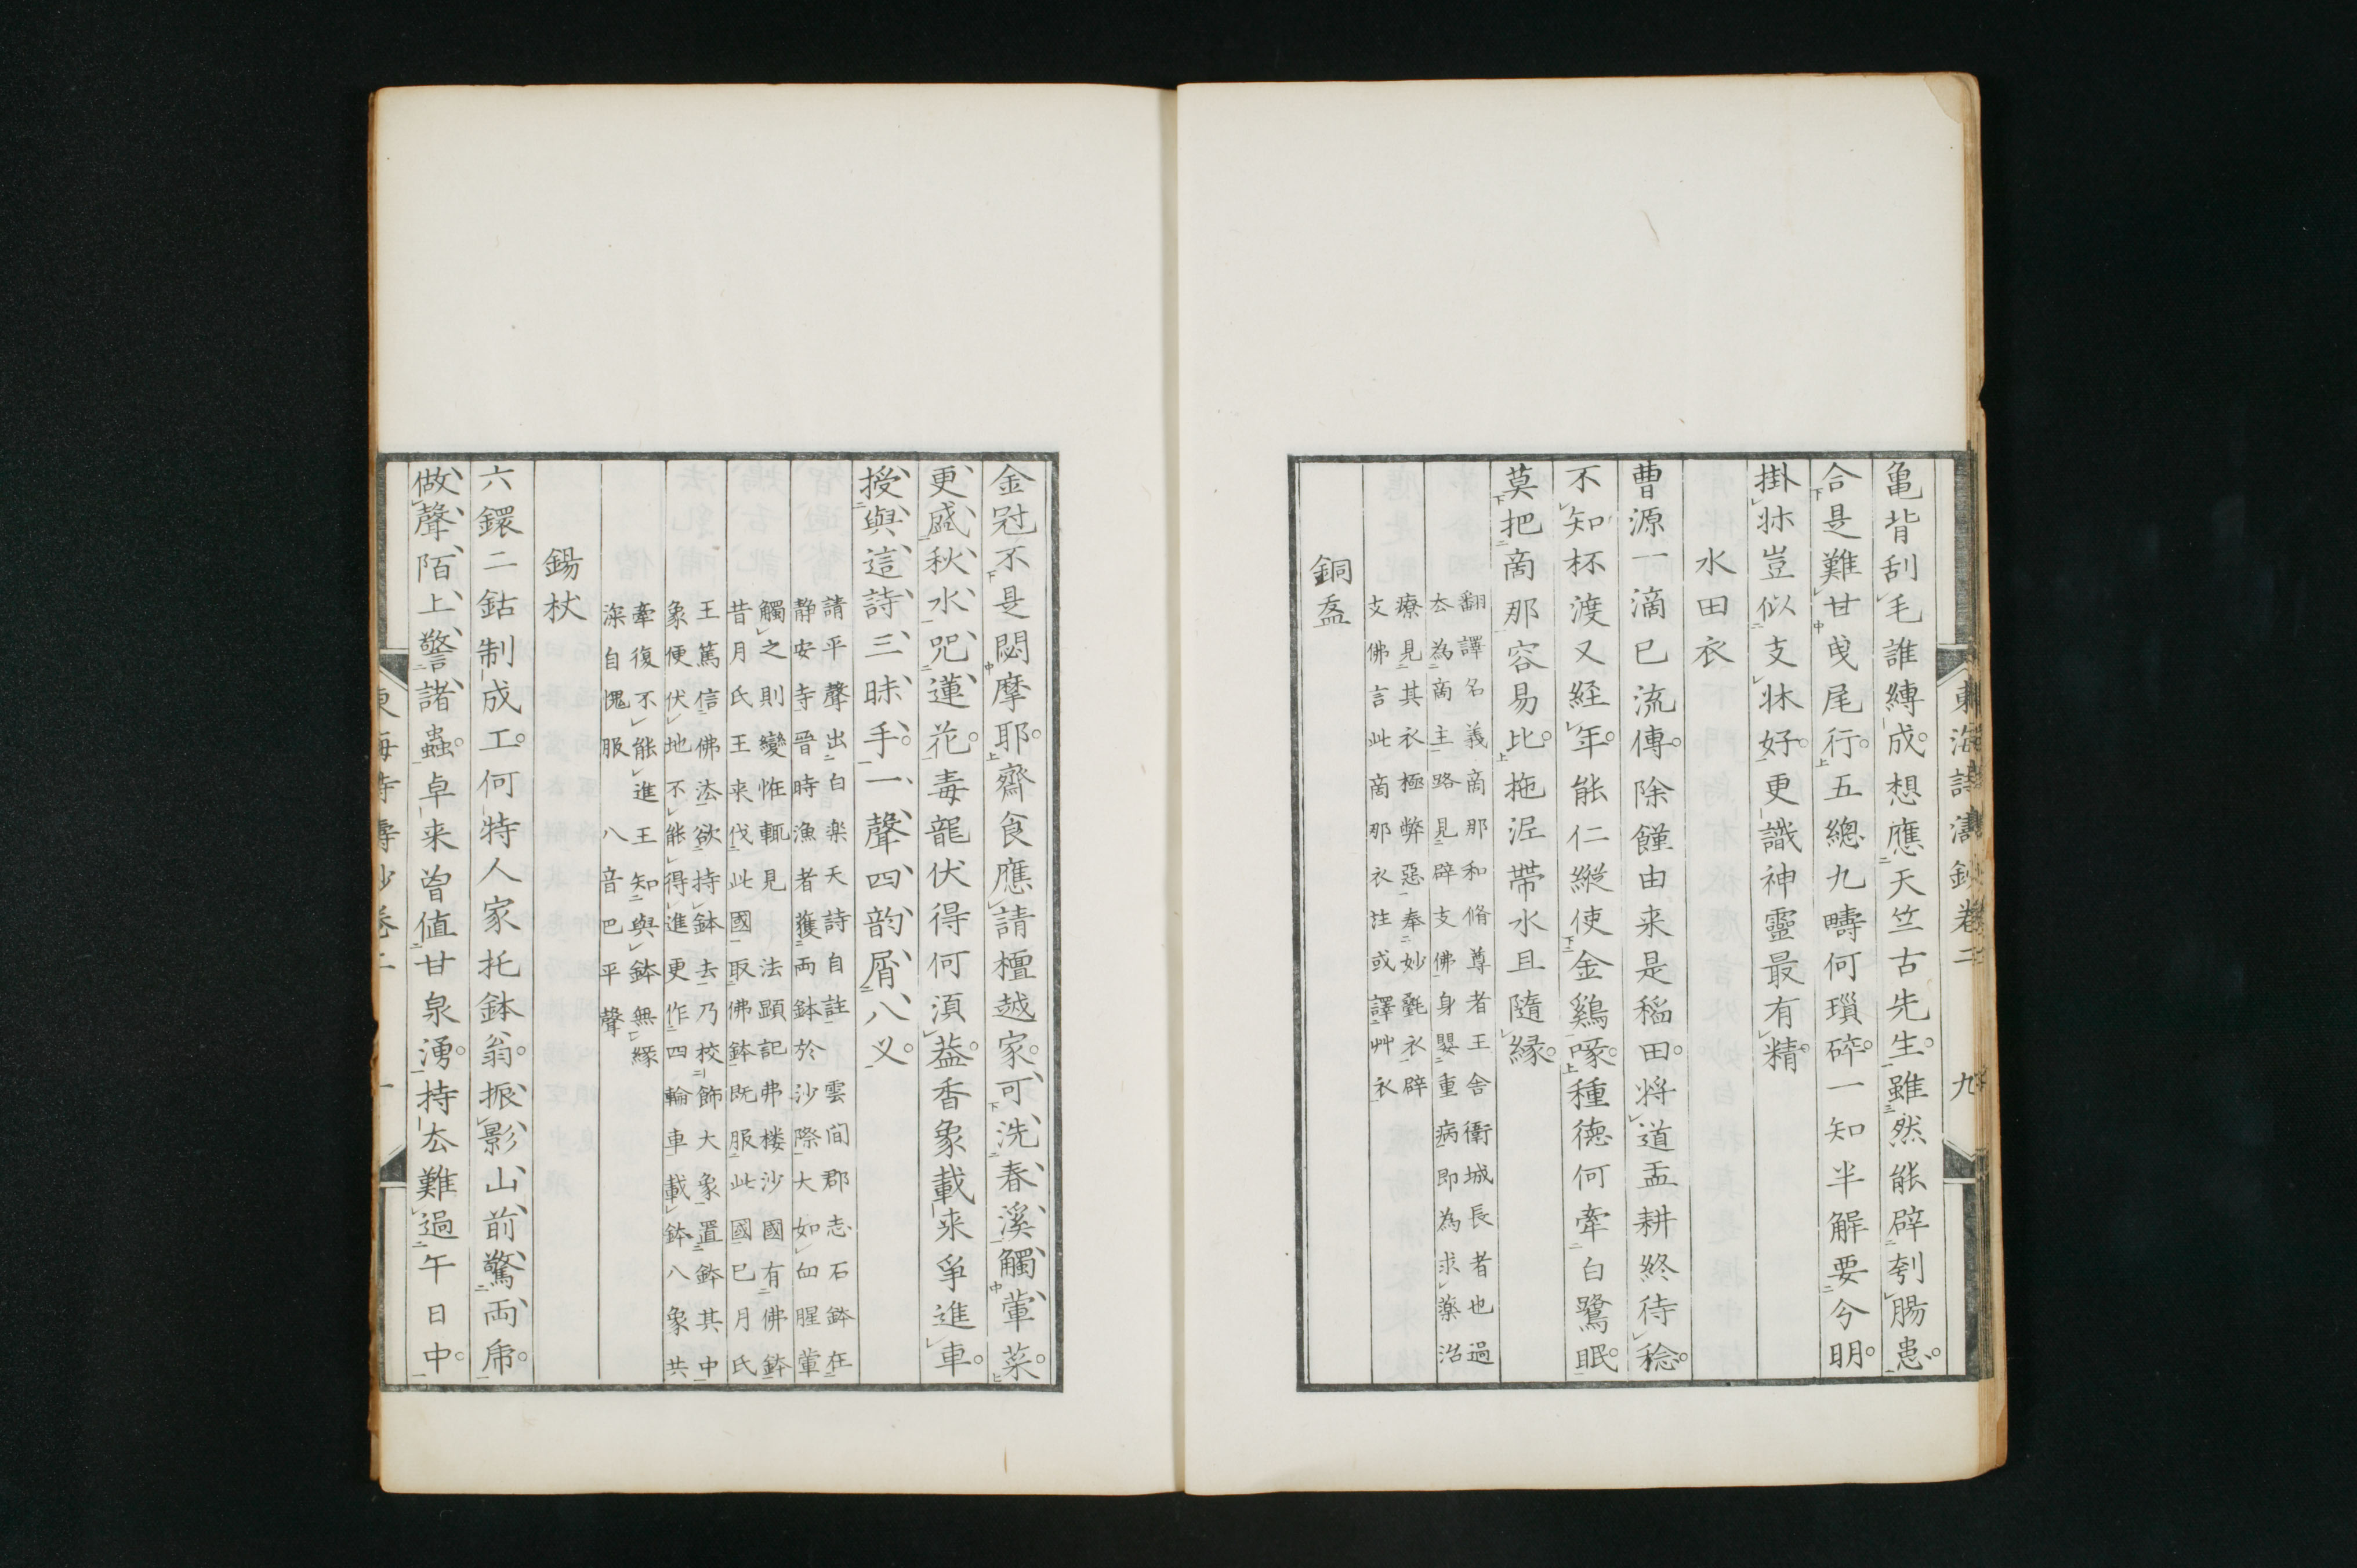 東海詩濤鈔卷二 九
亀背刮毛誰縛成。想應天竺古先生。雖然能辟刳腸患。
合是難甘曳尾行。五總九疇何瑣碎。一知半解要今明。
掛牀豈似支牀好。更識神靈最有精。
水田衣
曹源一滴已流傳。除饉由来是稲田。将道盂耕終待稔。
不知杯渡又経年。能仁縱使金鷄啄。種徳何牽白鷺眠。
莫把啇那容易比。拖泥帶水且隨縁。
翻譯名義啇那和脩尊者王舍衛城長者也過
去為啇主路見辟支佛身嬰重病即為求藥治
療見其衣極弊惡奉妙氎衣辟
支佛言此啇那衣注或譯艸衣
銅盋
金冠不是閟摩耶。齋食應請檀越家。可洗春溪觸葷菜。
更盛秋水咒蓮花。毒龍伏得何湏葢。香象載来爭進車。
授與這詩三昧手。一聲四韵屑八义。
請平聲出白楽天詩自註 雲间郡志石鉢在
静安寺晉時漁者獲両鉢於沙際大如臼腥葷
觸之則變惟輒見 法顕記弗楼沙國有佛鉢
昔月氏王来伐此國取佛鉢既服此國已月氏
王篤信佛法欲持鉢去乃校飾大象置鉢其中
象便伏地不能得進更作四輪車載鉢八象共
牽復不能進王知與鉢無縁
深自愧服 八音巴平聲
錫杖
六鐶二鈷制成工。何特人家托鉢翁。振影山前驚両虎。
做聲陌上警諸蟲。卓来曽値甘泉湧。持去難過午日中。